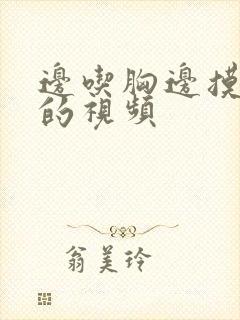 邊喫胸邊摸
的視頻
翁美玲